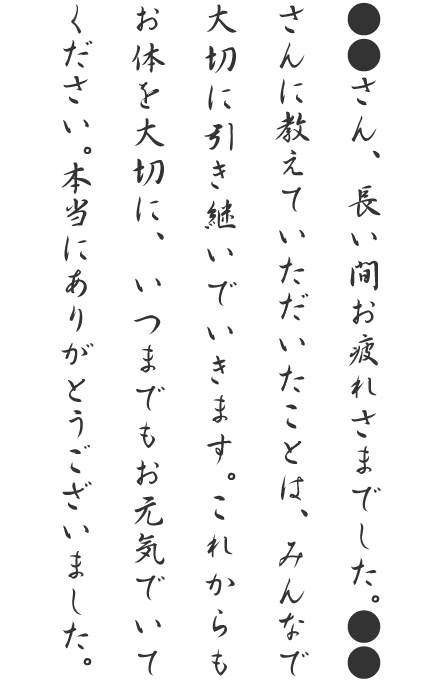 ●●さん、長い間お疲れさまでした。●●
さんに教えていただいたことは、みんなで
大切に引き継いでいきます。これからも
お体を大切に、いつまでもお元気でいて
ください。本当にありがとうございました。